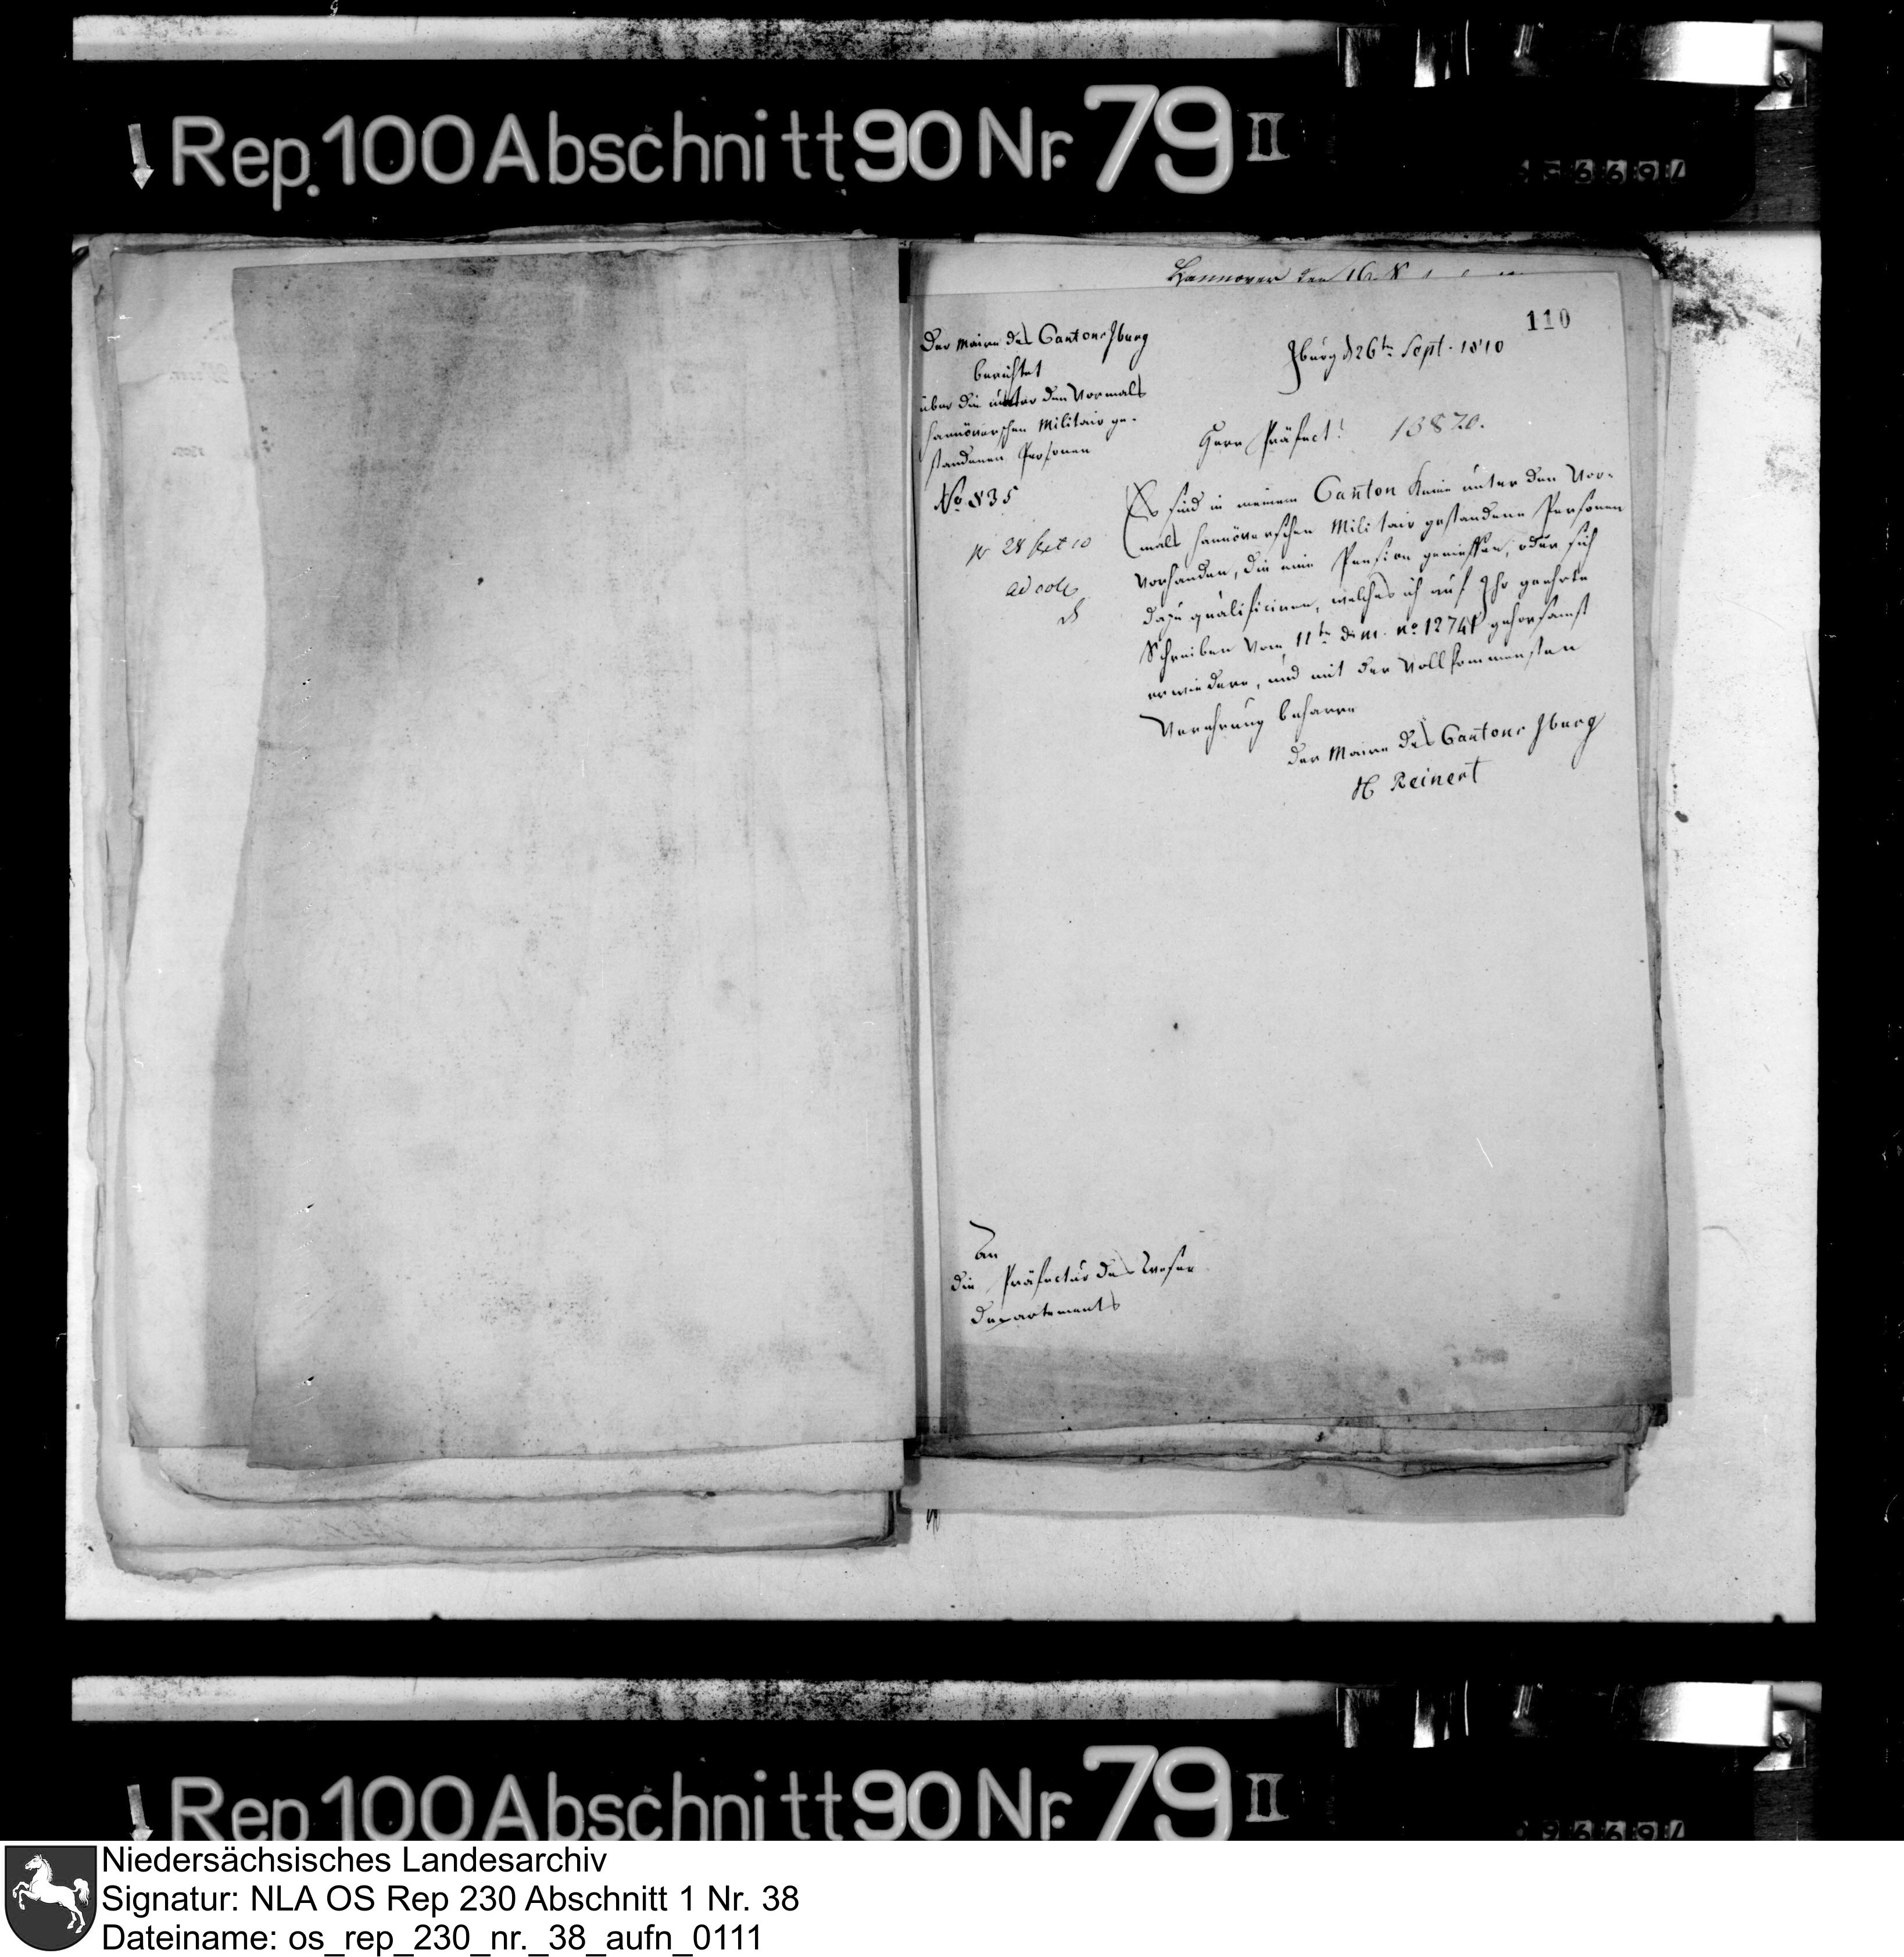 Rep. 100 Abschnitt 90 Nr. 79 II
Hannover den 16.
110
Der Maire des Cantons Iburg
berichtet
über die unter den Vormals
hannöverschen Militair ge-
standenen Personen
No 835
Iburg d 26tn Sept. 1810
Herr Präfect! 13820.
pr 28 Sept 10
Es sind in meinem Canton keine unter den Vor-
mals hannöverschen Militair gestandene Personen
vorhanden, die eine Pension geniessen, oder sich
dazu qualificiren, welches ich auf Ihr geehrte
Schreiben vom 11tn d. M. no 12741 gehorsamst
erwiedere, und mit der Vollkommensten
Verehrung beharre
der Maire des Cantons Iburg
H Reinert
An
die Präfectur des Weser
Departements
Rep 100 Abschnitt 90 Nr. 79 II
Niedersächsisches Landesarchiv
Signatur: NLA OS Rep 230 Abschnitt 1 Nr. 38
Dateiname: os_rep_230_nr._38_aufn_0111